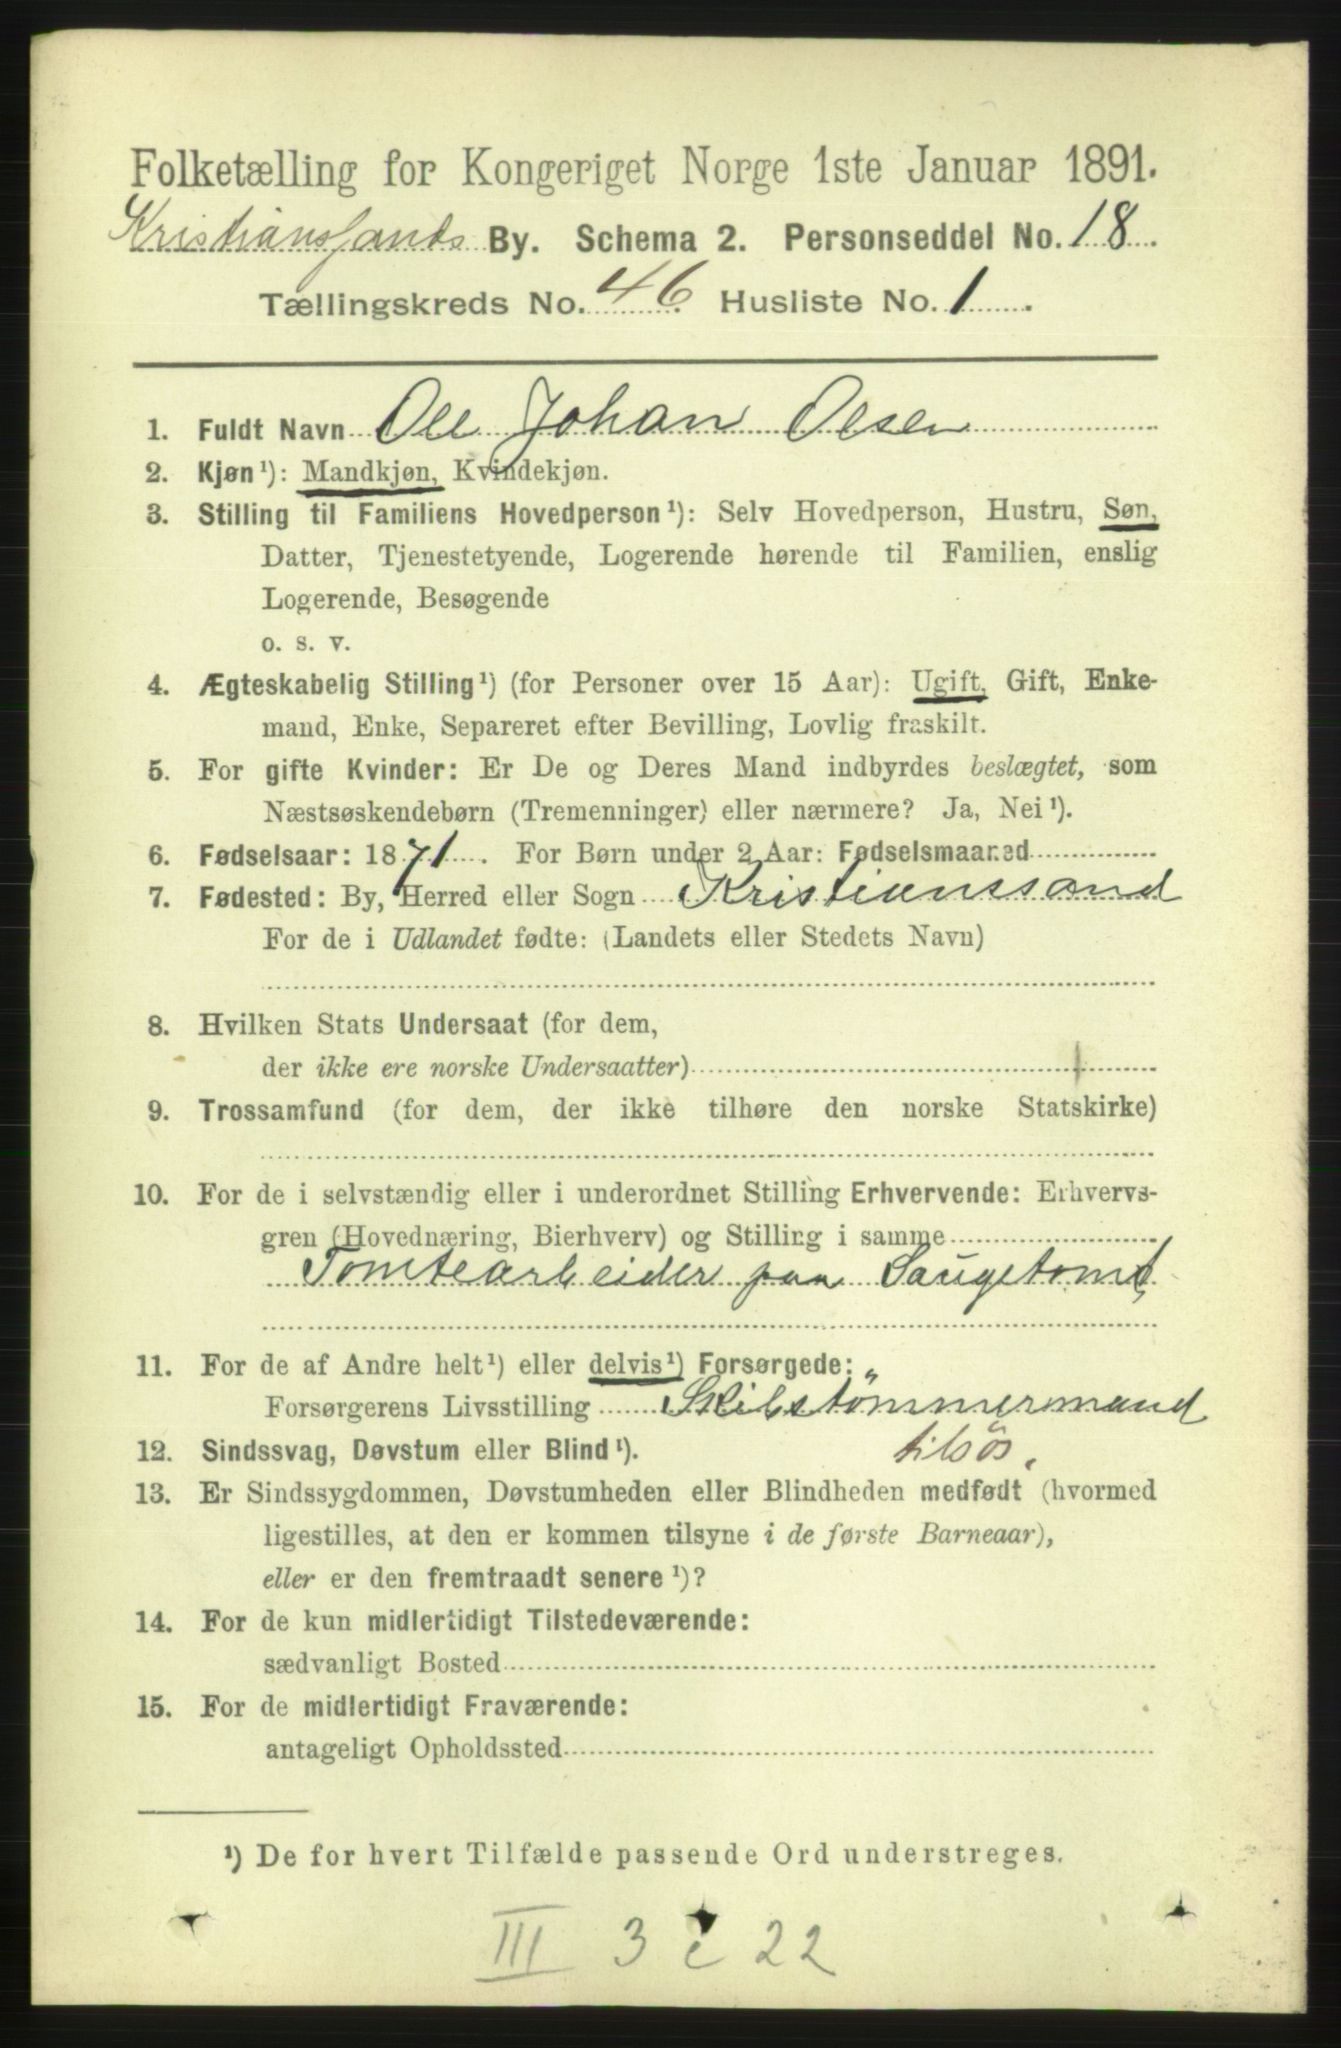 Folketælling for Kongeriget Norge 1ste Januar 1891.
Kristianssands By. Schema 2. Personseddel No. 18.
Tællingskreds No. 46. Husliste No. 1.
1. Fuldt Navn Ole Johan Olsen
2. Kjøn¹): Mandkjøn, Kvindekjøn.
3. Stilling til Familiens Hovedperson¹): Selv Hovedperson, Hustru, Søn,
Datter, Tjenestetyende, Logerende hørende til Familien, enslig
Logerende, Besøgende
o. s. v.
4. Ægteskabelig Stilling¹) (for Personer over 15 Aar): Ugift, Gift, Enke-
mand, Enke, Separeret efter Bevilling, Lovlig fraskilt.
5. For gifte Kvinder: Er De og Deres Mand indbyrdes beslægtet, som
Næstsøskendebørn (Tremenninger) eller nærmere? Ja, Nei¹).
6. Fødselsaar: 1871. For Børn under 2 Aar: Fødselsmaaned
7. Fødested: By, Herred eller Sogn Kristianssand
For de i Udlandet fødte: (Landets eller Stedets Navn)
8. Hvilken Stats Undersaat (for dem,
der ikke ere norske Undersaatter)
9. Trossamfund (for dem, der ikke tilhøre den norske Statskirke)
10. For de i selvstændig eller i underordnet Stilling Erhvervende: Erhvervs-
gren (Hovednæring, Bierhverv) og Stilling i samme
Tomtearbeider paa Saugetomt
11. For de af Andre helt¹) eller delvis¹) Forsørgede:
Forsørgerens Livsstilling Skibstømmermand
tilsøs.
12. Sindssvag, Døvstum eller Blind¹).
13. Er Sindssygdommen, Døvstumheden eller Blindheden medfødt (hvormed
ligestilles, at den er kommen tilsyne i de første Barneaar),
eller er den fremtraadt senere¹)?
14. For de kun midlertidigt Tilstedeværende:
sædvanligt Bosted
15. For de midlertidigt Fraværende:
antageligt Opholdssted
¹) De for hvert Tilfælde passende Ord understreges.
III 3 c 22